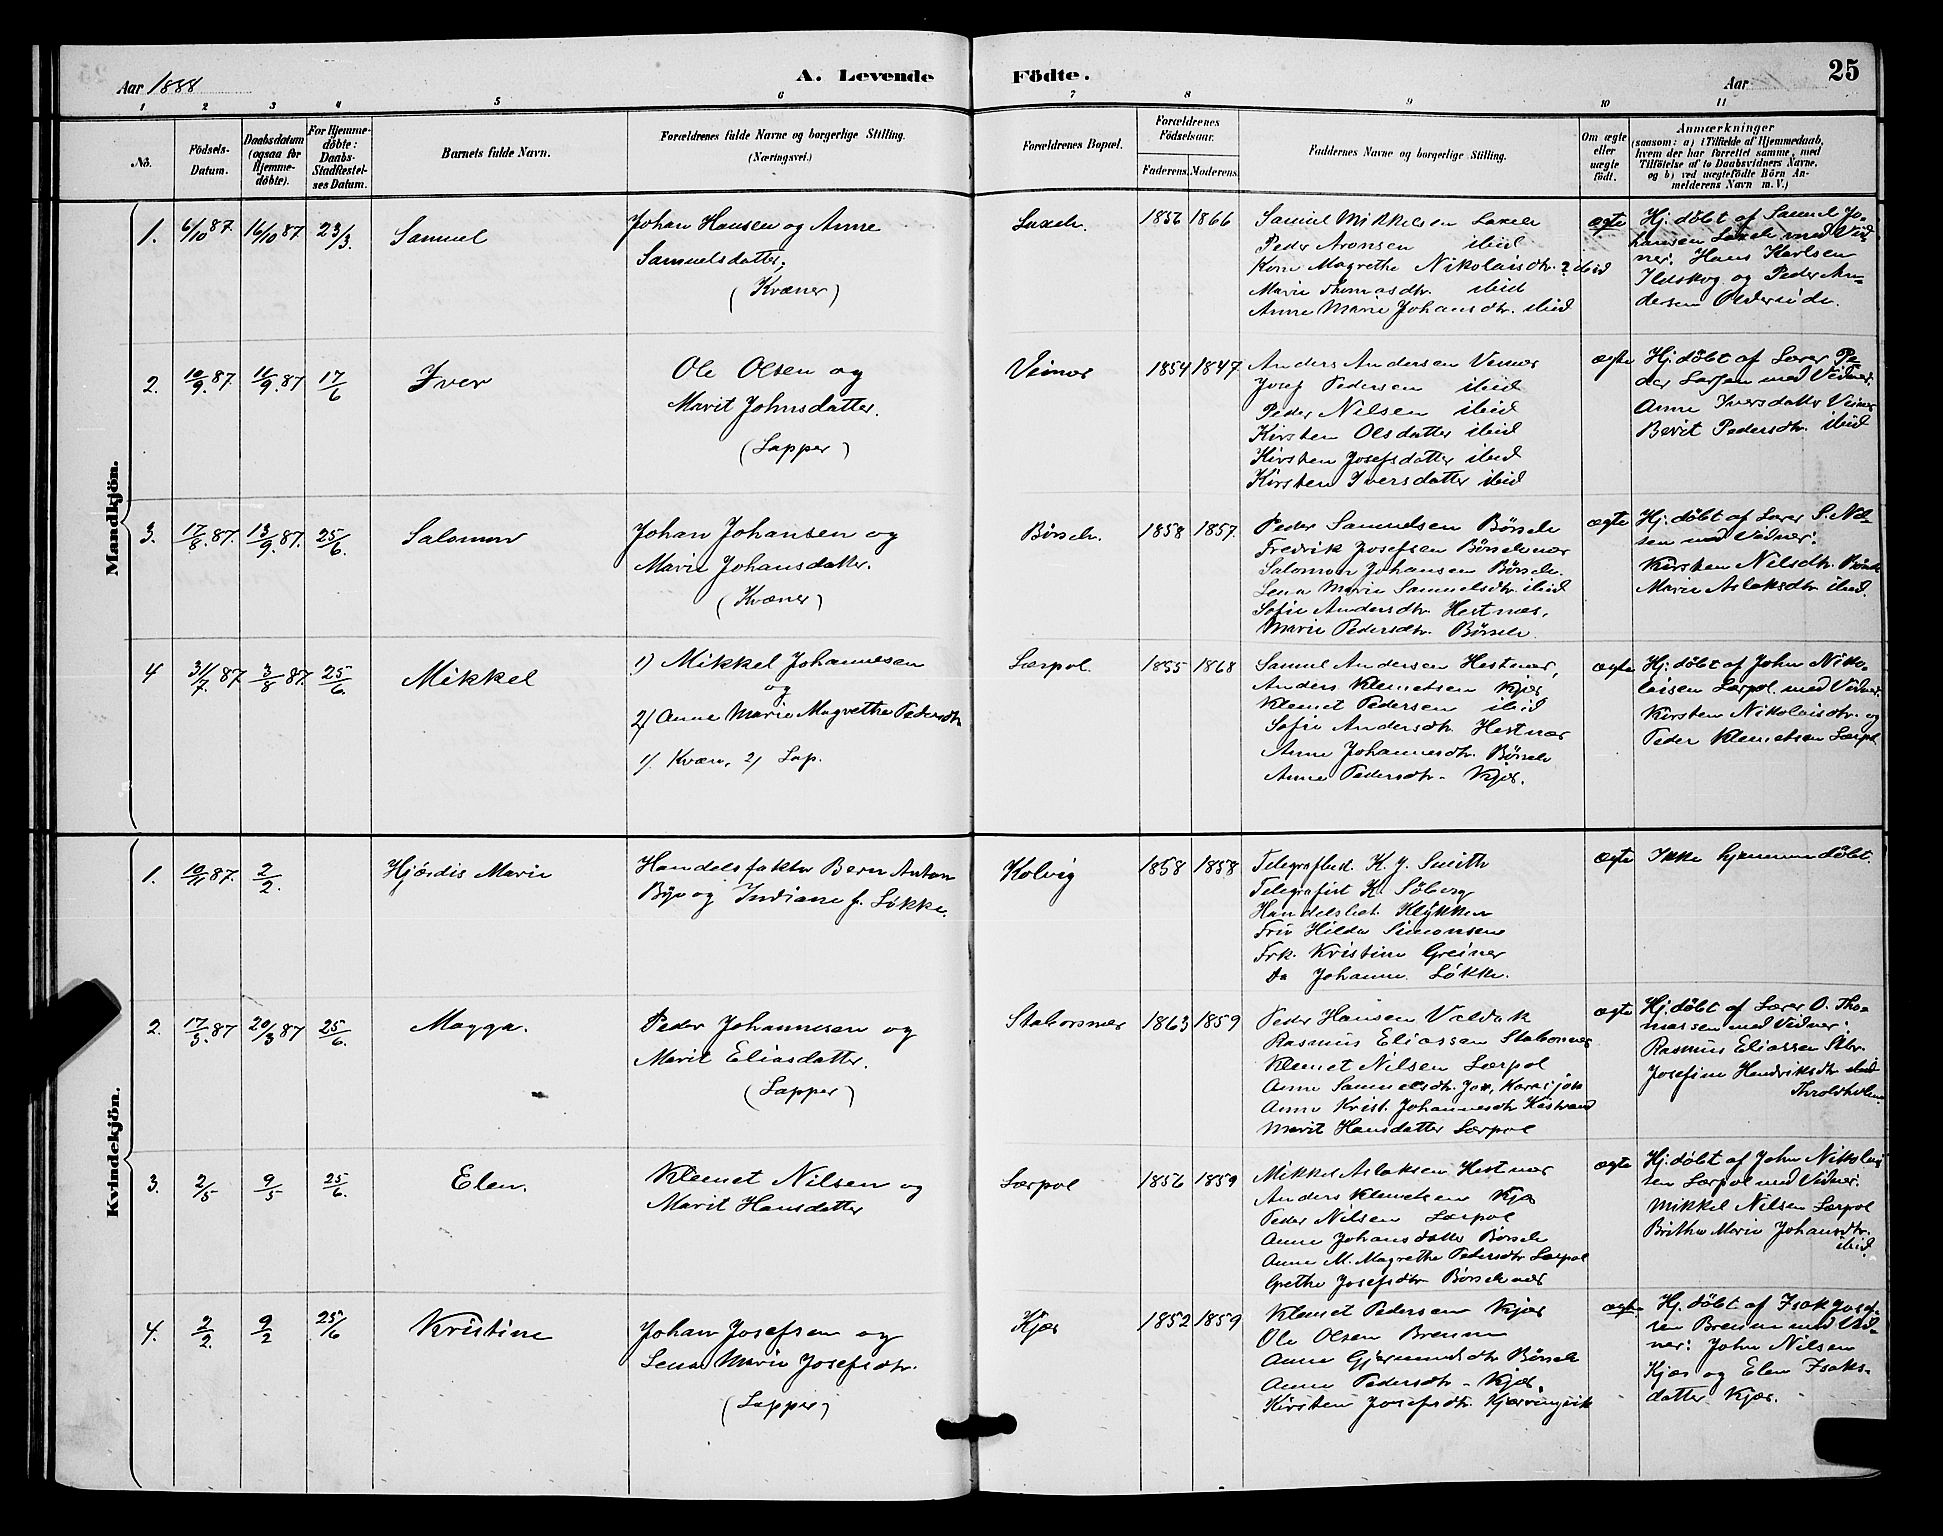 Aar 1888
A. Levende
Födte.
Aar
25
1 2 3 4 5 6 7 8 9 10 11
No.
Födsels-
Datum.
Daabsdatum
(ogsaa for
Hjemme-
døbte).
For Hjemme-
døbte:
Daabs-
Stadfæstel-
ses Datum.
Barnets fulde Navn.
Forældrenes fulde Navne og borgerlige Stilling.
(Næringsvei.)
Forældrenes Bopæl.
Forældrenes
Födselsaar.
Faderens.
Moderens.
Faddernes Navne og borgerlige Stilling.
Om ægte
eller
uægte
født.
Anmærkninger
(saasom: a) i Tilfælde af Hjemmedaab,
hvem der har forrettet samme, med
Tilføielse af to Daabsvidners Navne,
og b) ved uægtefødte Börn An-
melderens Navn m. V.)
Mandkjön.
1. 6/10 87. 16/10 87 23/3. Samuel
Johan Hansen og Anne
Samuelsdatter.
(Kvæner)
Laxelv. 1856 1866
Samuel Mikkelsen Laxelv
Peder Aronsen ibid
Karn Magrethe Nikolaisdtr. ? ibid
Marie Thomasdtr. ibid
Anne Marie Johansdtr. ibid
ægte
Hj. døbt af Samuel Jo-
hansen Laxelv med Vid
ner: Hans Karlsen
Ildskog og Peder An-
dersen Oldereide.
2. 10/9 87. 11/9 87 17/6 Iver
Ole Olsen og
Marit Johnsdatter.
(Lapper)
Veines 1854 1847.
Anders Andersen Veines
Josef Pedersen ibid
Peder Nilsen ibid
Kirsten Olsdatter ibid
Kirsten Josefsdatter ibid
Kirsten Iversdatter ibid
ægte
Hj. døbt af Lærer Pe-
der Larsen med Vidner:
Anne Iversdatter Veines
Berit Pedersdtr. ibid
3. 17/8. 87. 13/9. 87. 25/6. Salomon
Johan Johansen og
Marie Johansdatter.
(Kvæner)
Børselv. 1858 1857.
Peder Samuelsen Børselv
Fredrik Josefsen Børselvnæs
Salomon Johansen Børselv.
Lena Marie Samuelsdtr. ibid
Sofie Andersdtr. Hestnæs,
Marie Pedersdtr. Børselv
ægte
Hj. døbt af Lærer S. Nil-
sen med Vidner:
Kirsten Nilsdtr. Børselv
Marie Aslaksdtr. ibid.
4 31/7. 87 3/8 87. 25/6. Mikkel
1) Mikkel Johannesen
og
2) Anne Marie Magrethe Pedersdtr
1). Kvæn, 2) Lap.
Lærpol. 1855 1868
Samuel Andersen Hestnæs,
Anders Klemetsen Kjæs
Klemet Pedersen ibid
Sofie Andersdtr. Hestnæs
Anne Johannesdtr. Børselv
Anne Pedersdtr. Kjæs.
ægte
Hj. døbt af John Niko-
laisen Lærpol. med Vidner:
Kirsten Nikolaisdtr. og
Peder Klemetsen Lærpol
Kvindekjön.
1. 10/11 87. 2/2. Hjørdis Marie
Handelsfaktor Bern Anton
Bye og Indiane f. Løkke.
Kolvig 1858 1858
Telegrafbud. K. J. Smith
Telegrafist K. Søberg
Handelsbet. Klykken
Fru Hilda Simonsen
Frk. Kristine Greiner
Do Johanne Løkke.
ægte
Ikke hjemmedøbt.
2. 17/3. 87 20/3 87 25/6. Magga.
Peder Johannesen og
Marit Eliasdatter.
(Lapper)
Stabersnæs 1863 1859
Peder Hansen Valdak
Rasmus Eliassen Stabersnæs
Klemet Nilsen Lærpol
Anne Samuelsdtr. Karasjok
Anne Krist. Johannesdtr Kistrand
Marit Hansdatter Lærpol
ægte
Hj. døbt af Lærer O. Tho-
massen med Vidner:
Rasmus Eliassen Stbr.
Josefine Hendriksdtr
3. 2/5 9/5 25/6. Elen.
Klemet Nilsen og
Marit Hansdatter
Lærpol 1856 1859
Mikkel Aslaksen Hestnæs
Anders Klemetsen Kjæs
Peder Nilsen Lærpol
Anne Johansdatter Børselv
Anne M. Magrethe Pedersdtr Lærpol
Grethe Josefsdtr Børselvnæs
ægte
Hj. døbt af John Nikolai
sen Lærpol med Vidner:
Mikkel Nilsen Lærpol
Brithe Marie Johansdtr.
ibid
4. 2/2. 9/2 25/6 Kristine
Johan Josefsen og
Lena Marie Josefsdtr.
(Lapper)
Kjæs 1852 1859
Klemet Pedersen Kjæs
Ole Olsen Brenna
Anne Gjermundsdtr Børselv
Anne Pedersdtr - Kjæs.
Kirsten Josefsdtr. Kjærringvik
ægte
Hj. døbt af Isak Josef-
sen Brenna med Vid-
ner: John Nilsen
Kjæs og Elen Isaks-
datter Kjæs.